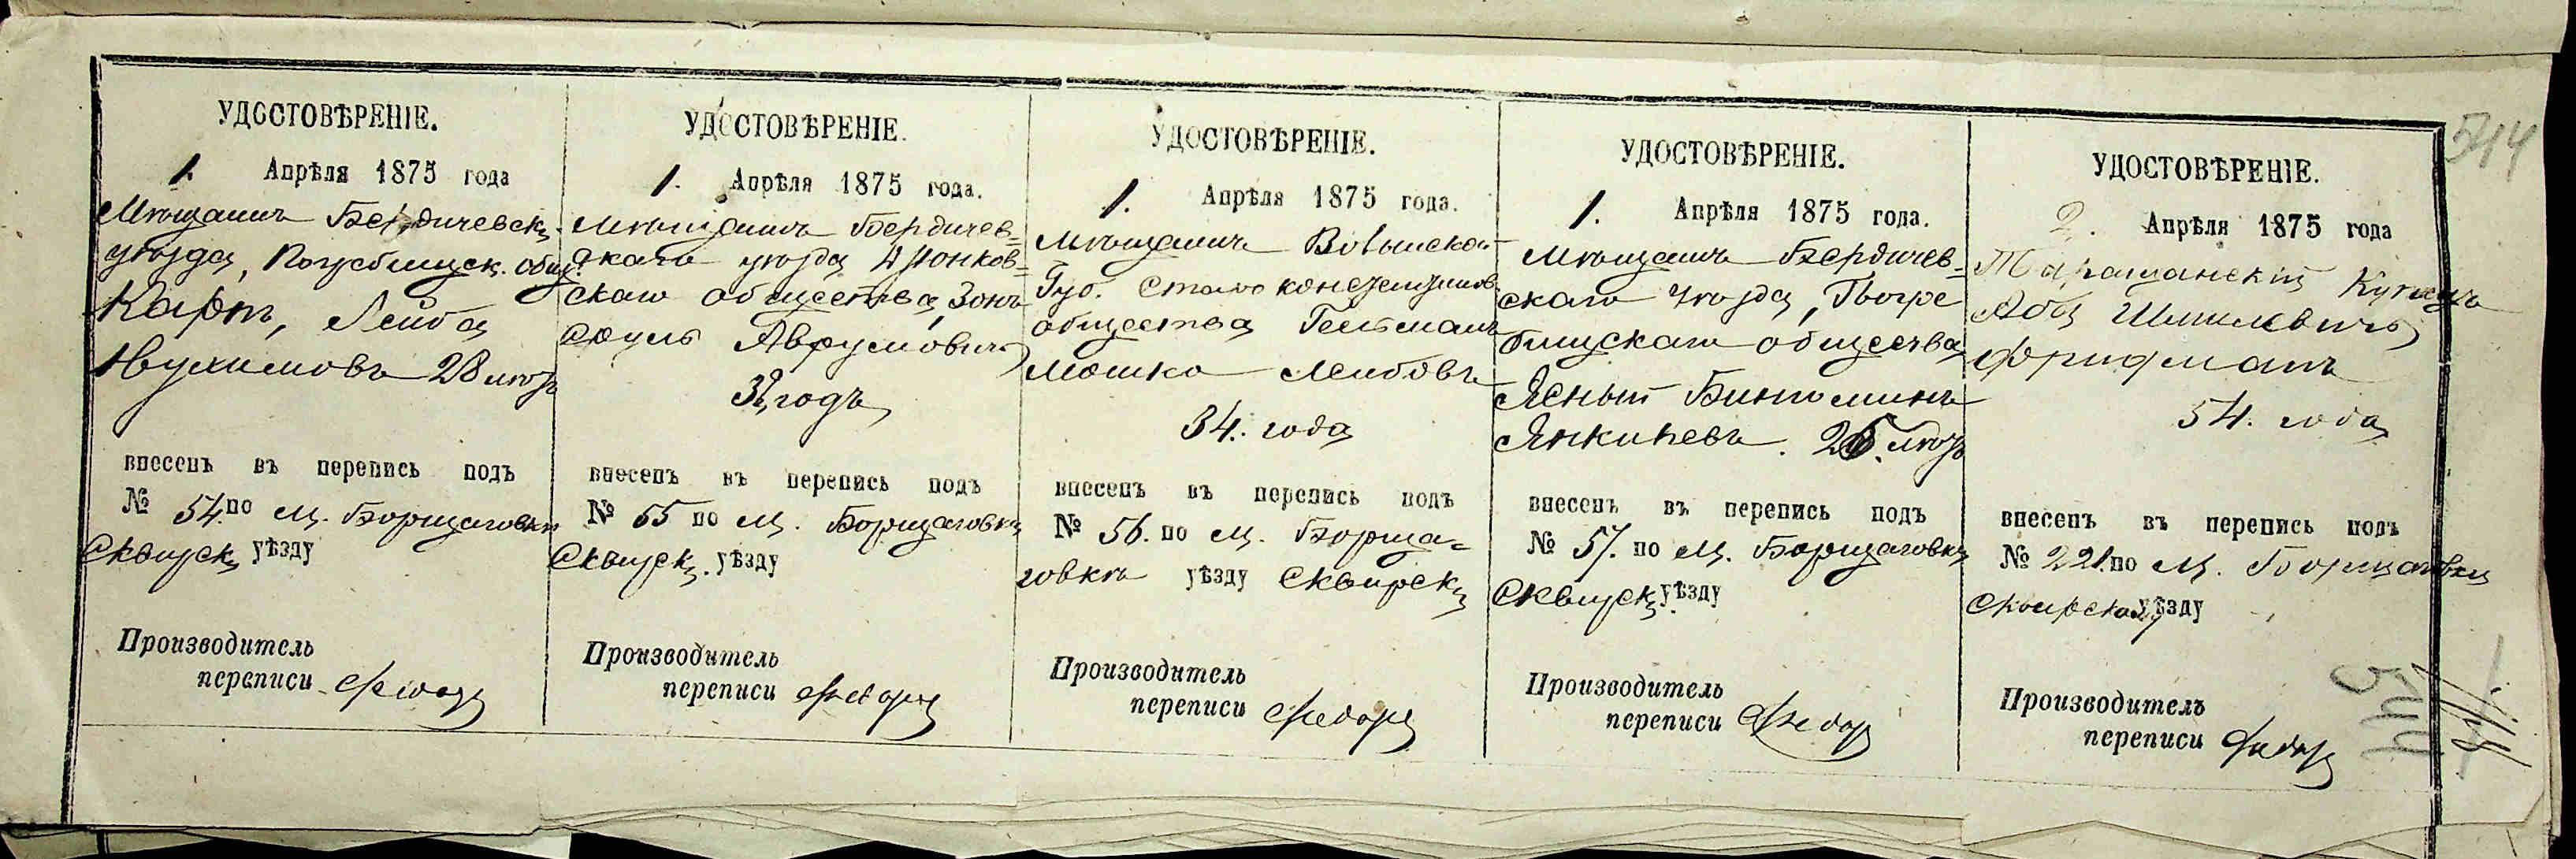 УДОСТОВѢРЕНІЕ.
1. Апрѣля 1875 года
Мѣщанинъ Бердичевск.
уѣзда, Погребищск. общ.
Карпъ, Лейба
Нухимовъ 28 лѣтъ
внесенъ въ перепись подъ
№ 54. по м. Борщаговки
Сквирск. уѣзду
Производитель
переписи
УДОСТОВѢРЕНІЕ.
1. Апрѣля 1875 года.
Мѣщанинъ Бердичев-
скаго уѣзда
скаго общества, Зонъ
Сруль Аврумовичъ
годъ
внесенъ въ перепись подъ
№ 55 по м. Борщаговки
Сквирск. уѣзду
Производитель
переписи
УДОСТОВѢРЕНІЕ.
1. Апрѣля 1875 года.
Мѣщанинъ Волынской
Губ. Староконстантинов.
общества Гельманъ
Мошко Лейбовъ
34. года
внесенъ въ перепись подъ
№ 56. по м. Борща-
говкѣ уѣзду Сквирск.
Производитель
переписи
УДОСТОВѢРЕНІЕ.
1. Апрѣля 1875 года.
Мѣщанинъ Бердичев-
скаго уѣзда, Погре
бищскаго общества
Ясный Биньоминъ
Янкилевъ. лѣтъ
внесенъ въ перепись подъ
№ 57. по м. Борщаговки
Сквирск. уѣзду
Производитель
переписи
УДОСТОВѢРЕНІЕ.
2. Апрѣля 1875 года
Таращанскій Купецъ
Аба Шмилевичъ
Фридманъ
54. года
внесенъ въ перепись подъ
№ 221. по м. Борщаговки
Сквирскому уѣзду
Производитель
переписи
544
544